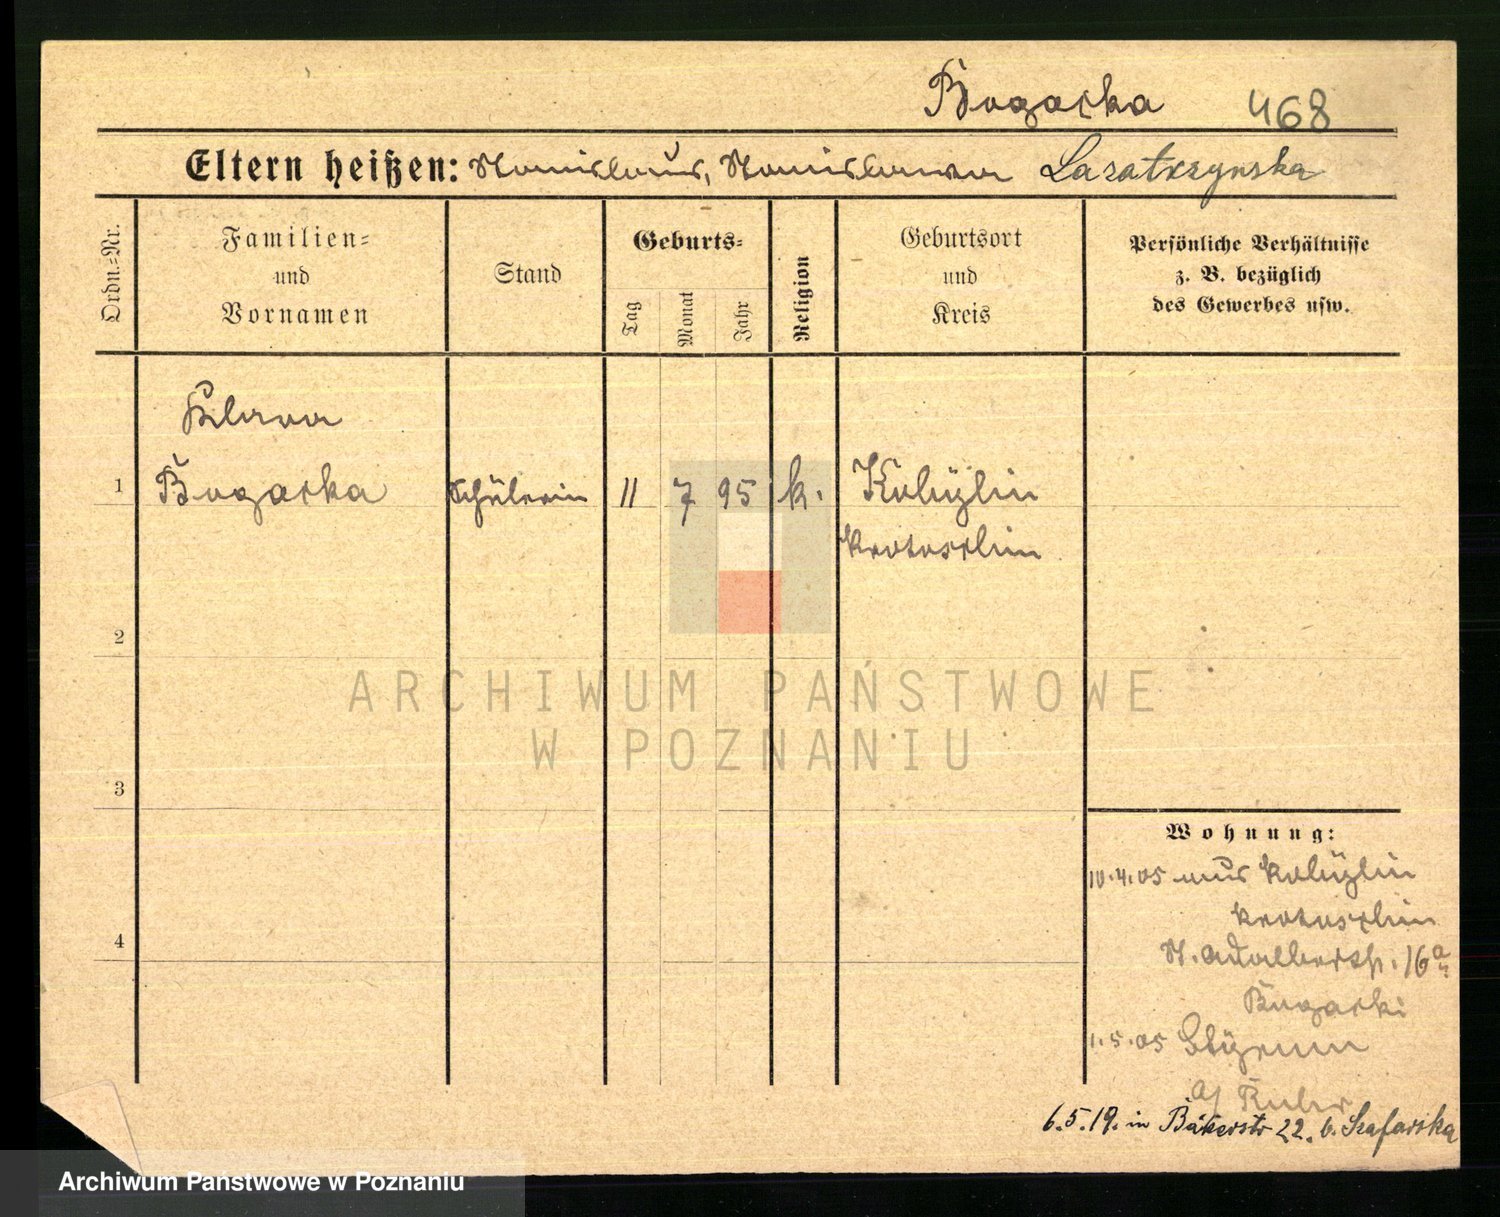 Bogacka 468
Eltern heißen: Stanislaus, Stanislawa Lasatrzynska
Ordn.=Nr.
Familien=
und
Vornamen
Stand
Geburts=
Tag
Monat
Jahr
Religion
Geburtsort
und
Kreis
Persönliche Verhältnisse
z. B. bezüglich
des Gewerbes usw.
Klara
1 Bogacka Schülerin 11 7 95 k. Kobylin
Krotoschin
2
3
4
Wohnung:
10.4.05 aus Kobylin
Krotoschin
St. Adalbertstr. 16a
Bogacki
1.5.05
6.5.19. in Bäkerstr 22. b. Szafarska
ARCHIWUM PAŃSTWOWE
W POZNANIU
Archiwum Państwowe w Poznaniu